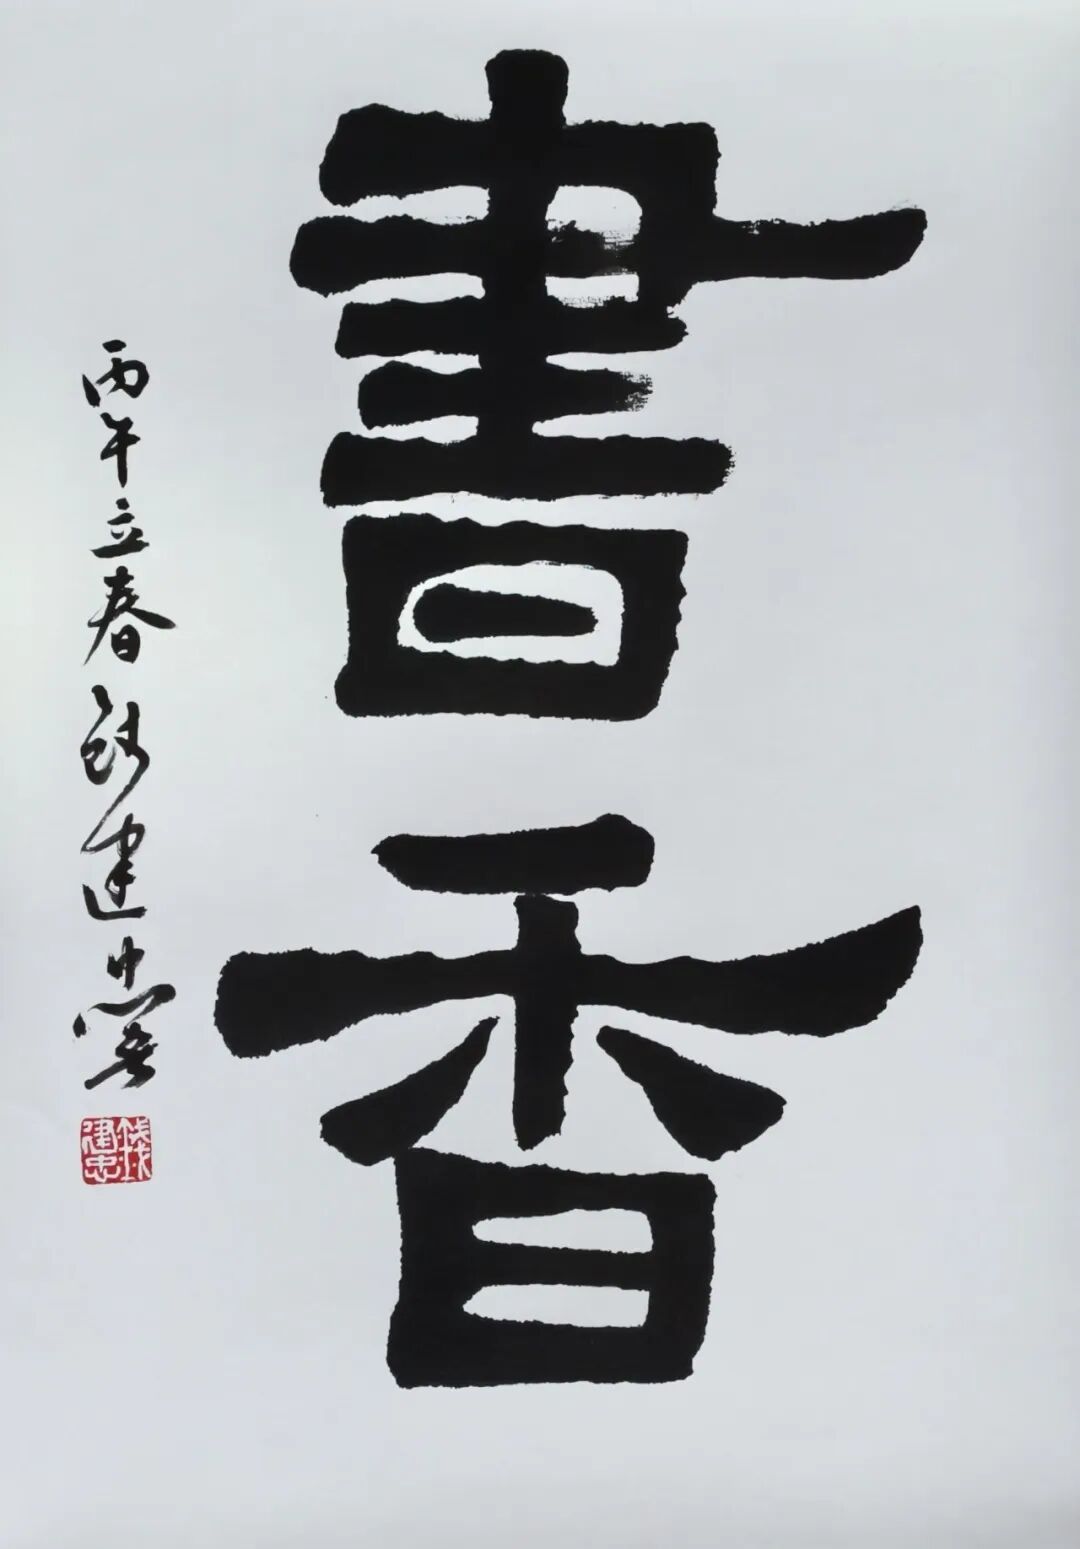 書香
丙午立春 钱建忠书
錢建忠